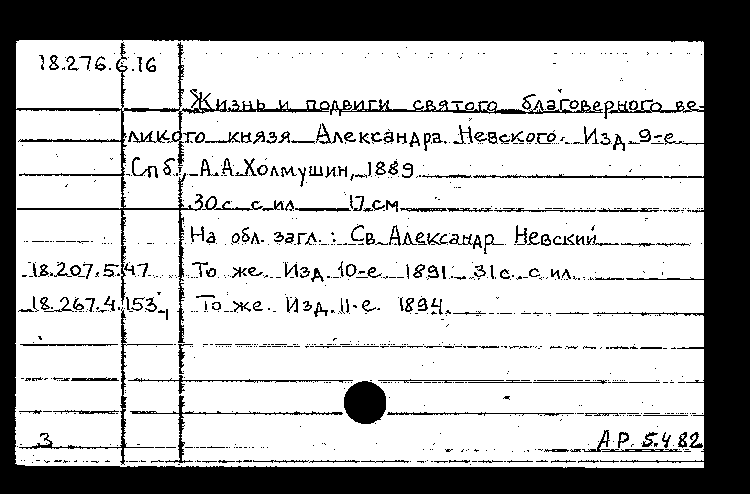 18.276.6.16
Жизнь и подвиги святого благоверного ве-
ликого князя Александра Невского. Изд. 9-е.
Спб., А.А.Холмушин, 1889
30 с. с ил. 17 см.
На обл. загл.: Св. Александр Невский
18.207.5.47 То же. Изд. 10-е. 1891. 31 с. с ил.
18.267.4.153 То же. Изд. 11-е. 1894.
3 АР. 5.4.82